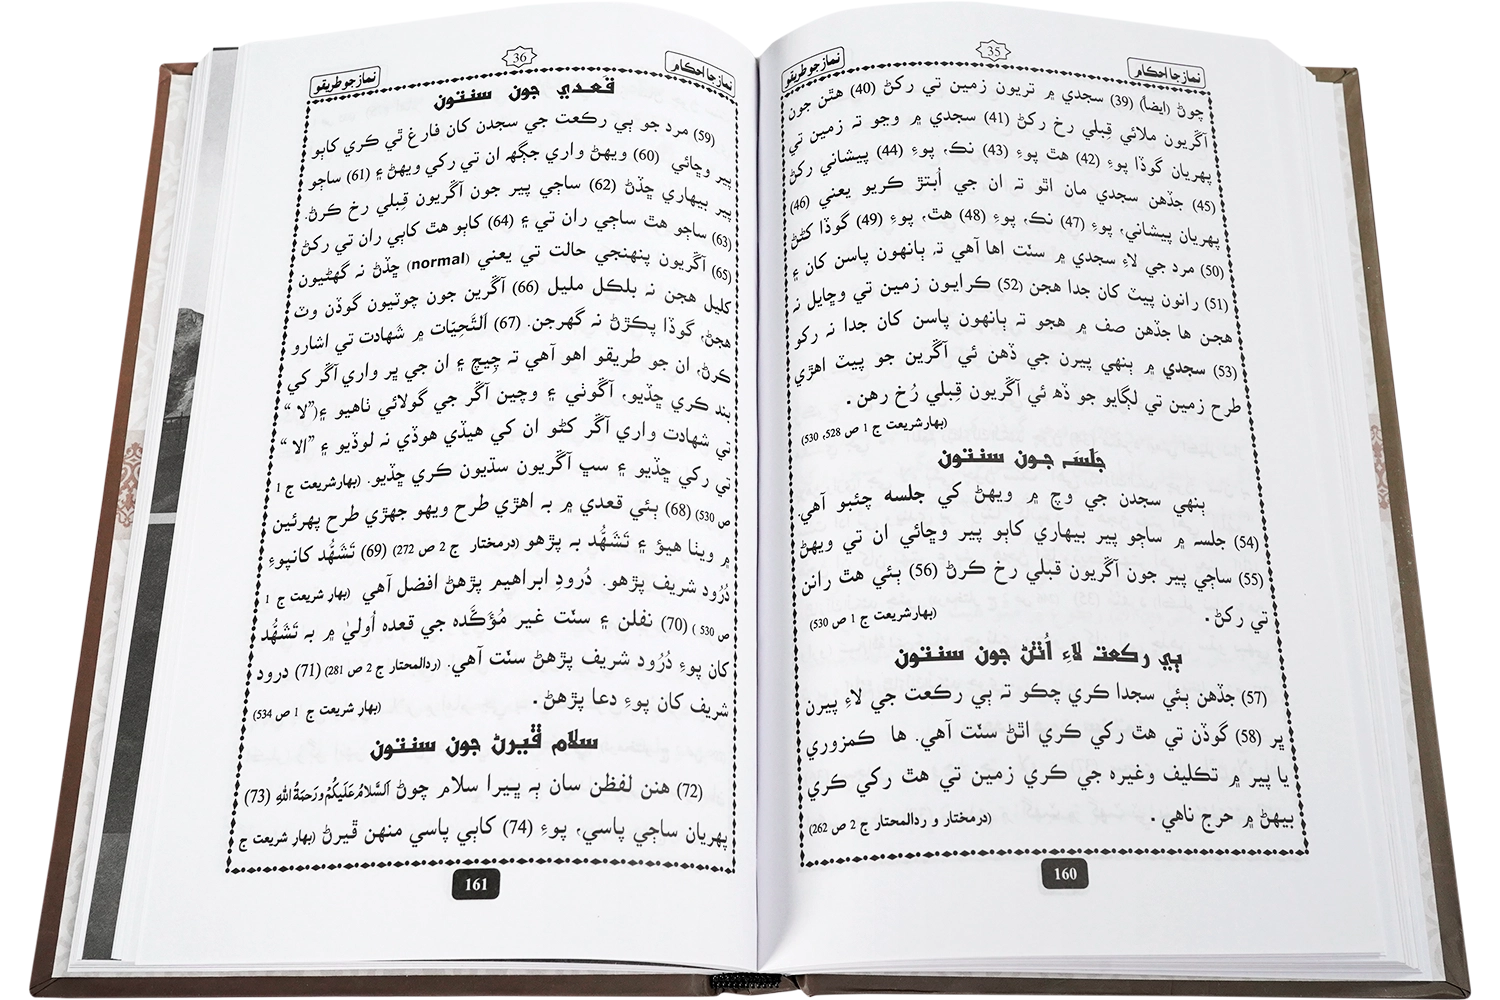 نماز جا احڪام
35
نماز جو طريقو
چوڻ (ايضاً) (39) سجدي ۾ تريون زمين تي رکڻ (40) هٿن جون
آڱريون ملائي قِبلي رخ رکڻ (41) سجدي ۾ وڃو ته زمين تي
پهريان گوڏا پوءِ (42) هٿ پوءِ (43) نڪ، پوءِ (44) پيشاني رکڻ
(45) جڏهن سجدي مان اٿو ته ان جي اُبتڙ ڪريو يعني (46)
پهريان پيشاني، پوءِ (47) نڪ، پوءِ (48) هٿ، پوءِ (49) گوڏا کڻڻ
(50) مرد جي لاءِ سجدي ۾ سنّت اها آهي ته ٻانهون پاسن کان ۽
(51) رانون پيٽ کان جدا هجن (52) ڪرايون زمين تي وڇايل نہ
هجن ها جڏهن صف ۾ هجو ته ٻانهون پاسن کان جدا نہ رکو
(53) سجدي ۾ ٻنهي پيرن جي ڏهن ئي آڱرين جو پيٽ اهڙي
طرح زمين تي لڳايو جو ڏه ئي آڱريون قِبلي رُخ رهن .
(بهار شريعت ج 1 ص 528، 530)
جَلسَہ جون سنتون
ٻنهي سجدن جي وچ ۾ ويهڻ کي جلسه چئبو آهي.
(54) جلسه ۾ ساڄو پير بيهاري کاٻو پير وڇائي ان تي ويهڻ
(55) ساڄي پير جون آڱريون قبلي رخ ڪرڻ (56) ٻئي هٿ رانن
تي رکڻ . (بهار شريعت ج 1 ص 530)
ٻي رڪعت لاءِ اُٿڻ جون سنتون
(57) جڏهن ٻئي سجدا ڪري چڪو ته ٻي رڪعت جي لاءِ پيرن
ڀر (58) گوڏن تي هٿ رکي ڪري اٿڻ سنّت آهي. ها ڪمزوري
يا پير ۾ تڪليف وغيره جي ڪري زمين تي هٿ رکي ڪري
بيهڻ ۾ حرج ناهي . (درمختار و ردالمحتار ج 2 ص 262)
160
نماز جا احڪام
36
نماز جو طريقو
قَعدي جون سنتون
(59) مرد جو ٻي رڪعت جي سجدن کان فارغ ٿي ڪري کاٻو
پير وڇائي (60) ويهڻ واري جڳهه ان تي رکي ويهڻ ۽ (61) ساڄو
پير بيهاري ڇڏڻ (62) ساڄي پير جون آڱريون قِبلي رخ ڪرڻ.
(63) ساڄو هٿ ساڄي ران تي ۽ (64) کاٻو هٿ کاٻي ران تي رکڻ
(65) آڱريون پنهنجي حالت تي يعني (normal) ڇڏڻ نہ گهڻيون
کليل هجن نہ بلڪل مليل (66) آڱرين جون چوٽيون گوڏن وٽ
هجڻ، گوڏا پڪڙڻ نہ گهرجن. (67) اَلتَّحِيّات ۾ شَهادت تي اشارو
ڪرڻ، ان جو طريقو اهو آهي ته چِيچ ۽ ان جي ڀر واري آڱر کي
بند ڪري ڇڏيو، آڱوٺي ۽ وچين آڱر جي گولائي ٺاهيو ۽ (”لا “
تي شهادت واري آڱر کڻو ان کي هيڏي هوڏي نہ لوڏيو ۽ ”الا “
تي رکي ڇڏيو ۽ سڀ آڱريون سڌيون ڪري ڇڏيو. (بهار شريعت ج 1
ص 530) (68) ٻئي قعدي ۾ بہ اهڙي طرح ويهو جهڙي طرح پهرئين
۾ ويٺا هيؤ ۽ تَشَهُّد بہ پڙهو (درمختار ج 2 ص 272) (69) تَشَهُّد کانپوءِ
دُرُود شريف پڙهو. دُرودِ ابراهيم پڙهڻ افضل آهي (بهار شريعت ج 1
ص 530 ) (70) نفلن ۽ سنّت غير مُؤَكَّده جي قعده اُوليٰ ۾ بہ تَشَهُّد
کان پوءِ دُرُود شريف پڙهڻ سنّت آهي. (ردالمحتار ج 2 ص 281) (71) درود
شريف کان پوءِ دعا پڙهڻ . (بهار شريعت ج 1 ص 534)
سلام ڦيرڻ جون سنتون
(72) هنن لفظن سان ٻہ ڀيرا سلام چوڻ اَلسَّلَامُ عَلَيْكُمْ وَرَحمَةُ اللهِ (73)
پهريان ساڄي پاسي، پوءِ (74) کاٻي پاسي منهن ڦيرڻ (بهار شريعت ج
161